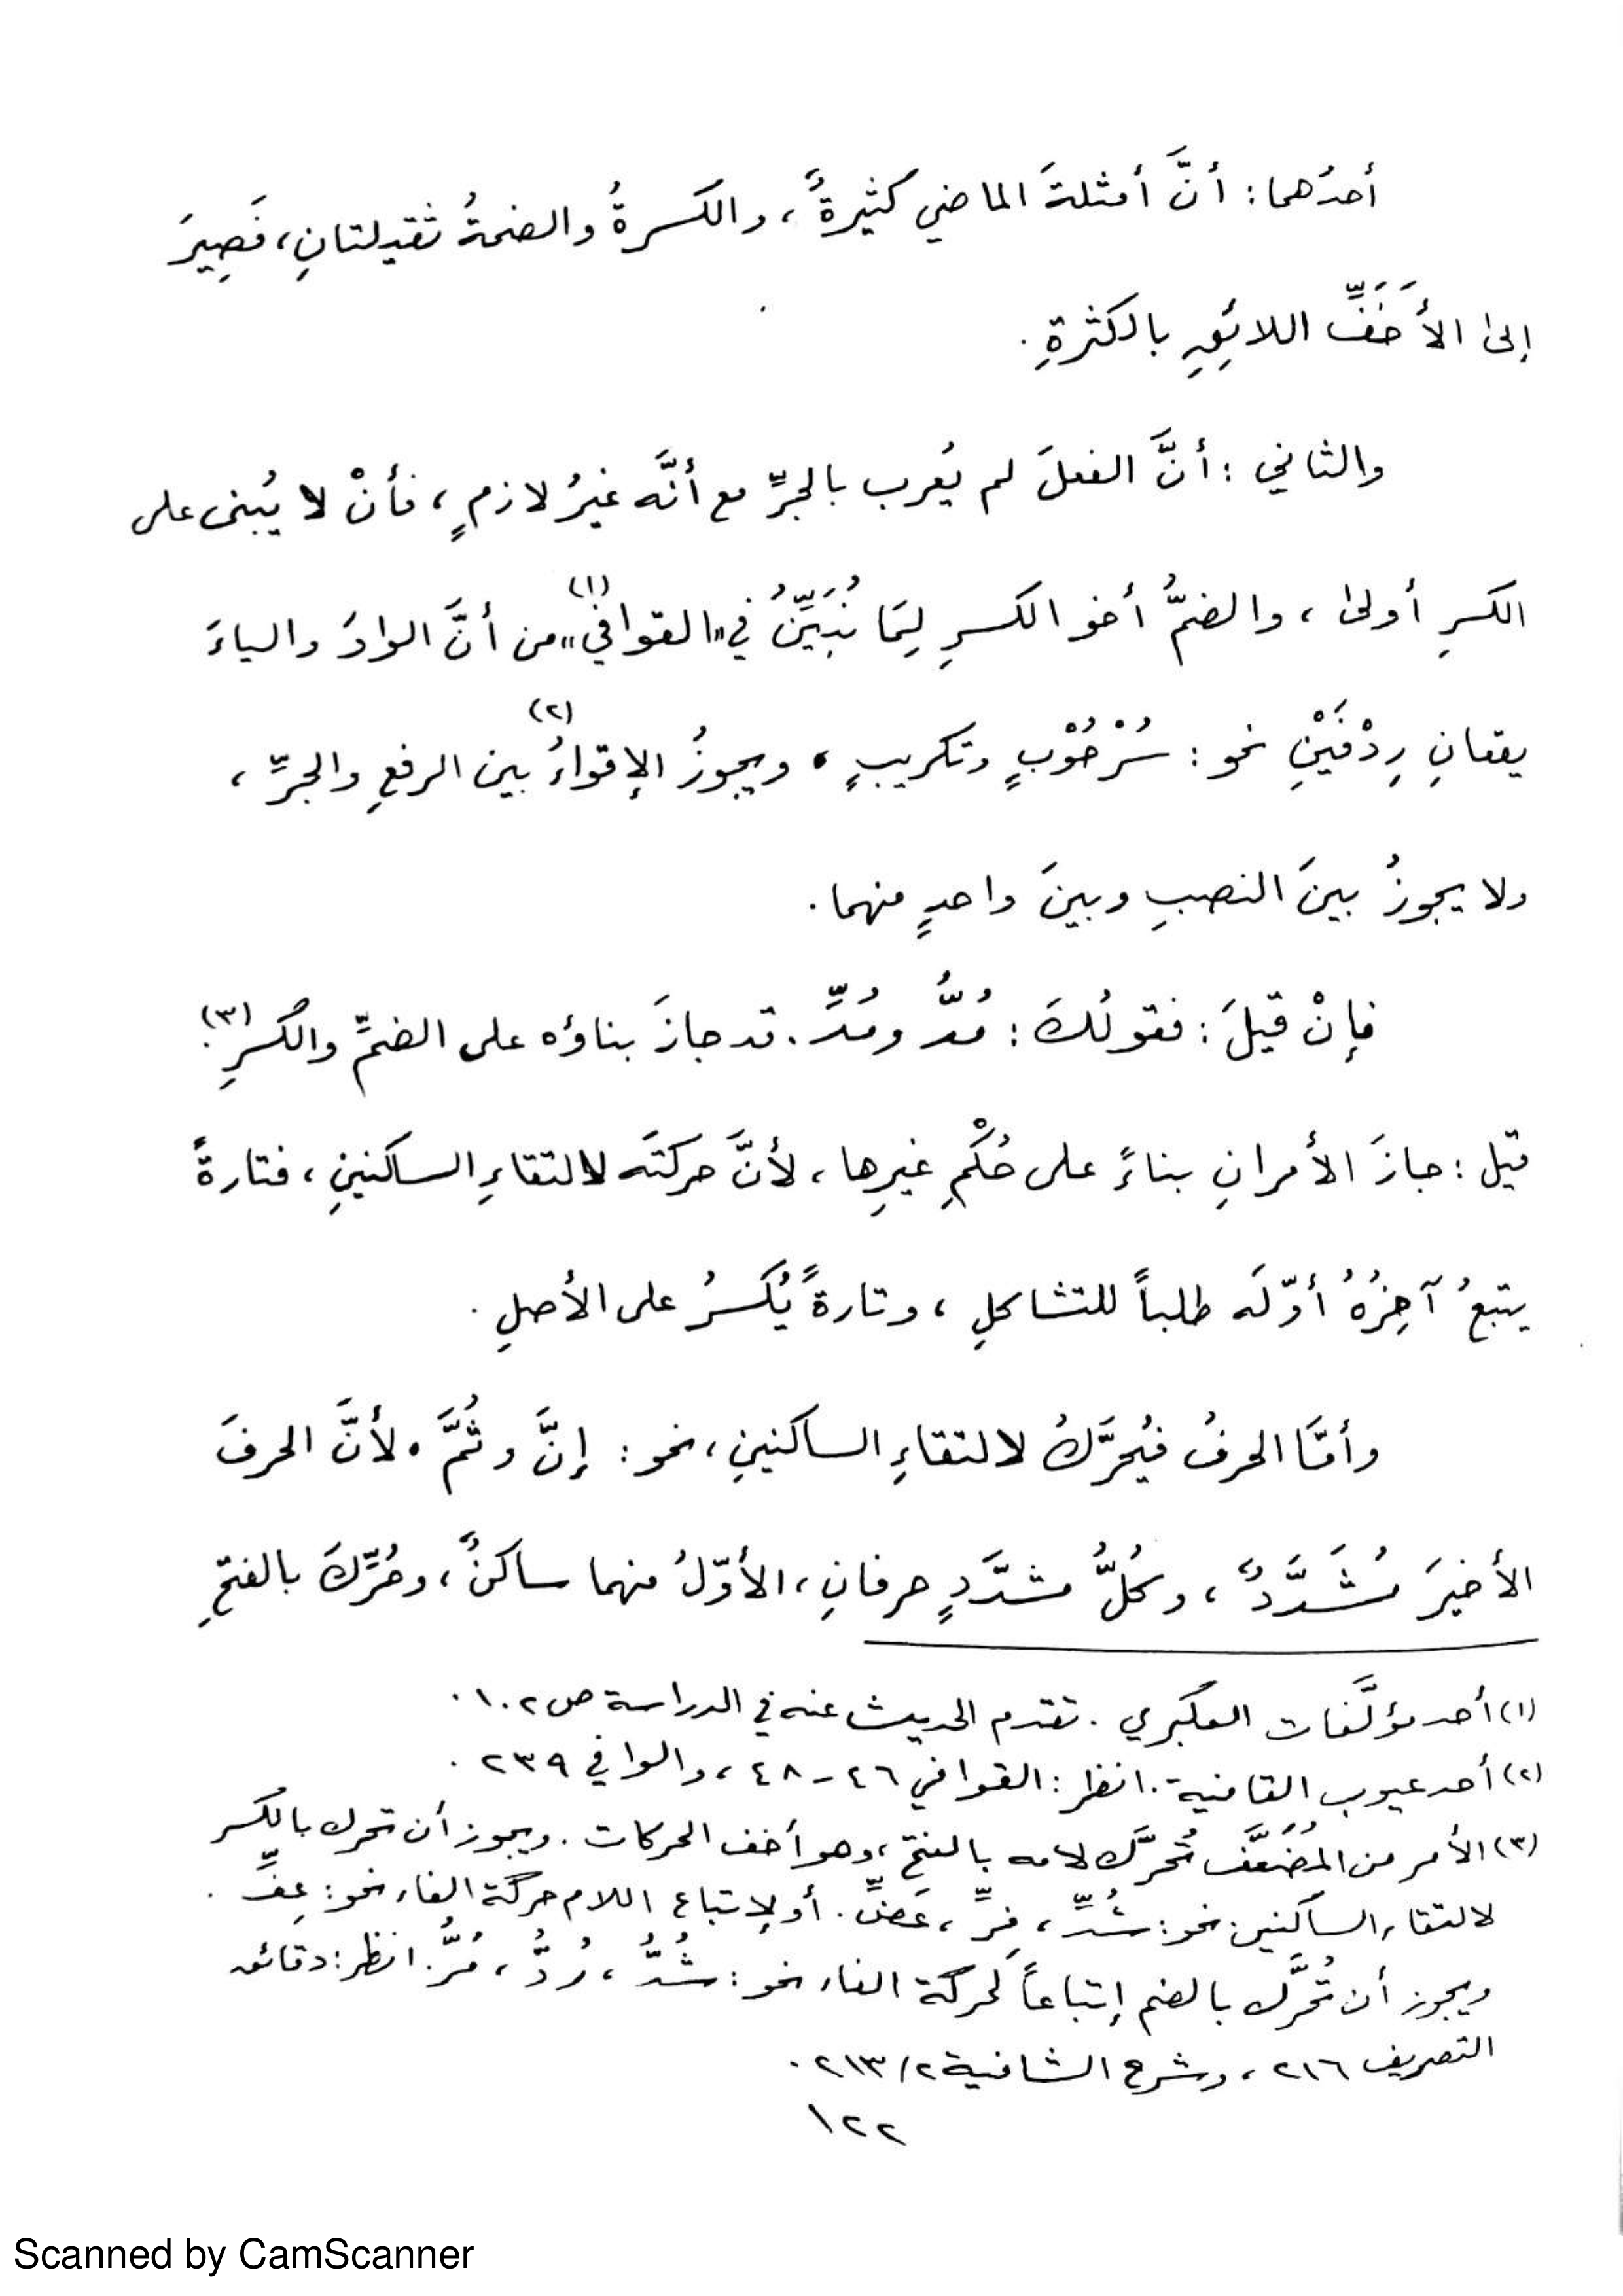 أحدُهما: أنَّ أمثلةَ الماضي كثيرةٌ، والكسرةُ والضمةُ ثقيلتانِ، فَصِيرَ
إلى الأَخَفِّ اللائِقِ بالكثرةِ.
والثاني: أنَّ الفعلَ لم يُعرب بالجرِّ مع أنَّه غيرُ لازمٍ، فأنْ لا يُبنى على
الكسرِ أولى، والضمُّ أخو الكسرِ لِمَا نُبَيِّنُ في «القوافي»(١) من أنَّ الواوَ والياءَ
يقعانِ رِدْفَيْنِ نحو: سُرْحُوْبٍ وتكريبٍ، ويجوزُ الإقواءُ(٢) بين الرفعِ والجرِّ،
ولا يجوزُ بينَ النصبِ وبينَ واحدٍ منهما.
فإنْ قيلَ: فقولُكَ: مُدُّ ومُدِّ. قد جازَ بناؤه على الضمِّ والكسرِ(٣).
قيل: جازَ الأمرانِ بناءً على حُكْمِ غيرِها، لأنَّ حركتَه لالتقاءِ الساكنينِ، فتارةً
يتبعُ آخِرُهُ أوّلَه طلباً للتشاكلِ، وتارةً يُكسرُ على الأصلِ.
وأمّا الحرفُ فيُحرَّكُ لالتقاءِ الساكنينِ، نحو: إنَّ وثُمَّ، لأنَّ الحرفَ
الأخيرَ مُشَدَّدٌ، وكُلُّ مشدَّدٍ حرفانِ، الأوّلُ منهما ساكنٌ، وحُرِّكَ بالفتحِ
(١) أحد مؤلَّفات العكبري. تقدم الحديث عنه في الدراسة ص ١٠٢.
(٢) أحد عيوب القافية. انظر: القوافي ٤٦-٤٨، والوافي ٢٣٩.
(٣) الأمر من المُضَعَّف تُحرَّك لامه بالفتح، وهو أخف الحركات. ويجوز أن تحرك بالكسر
لالتقاء الساكنين نحو: شُدِّ، فِرِّ، عَضِّ. أو لإتباع اللام حركة الفاء نحو: عِفِّ.
ويجوز أن تُحرَّك بالضم إتباعاً لحركة الفاء نحو: شُدُّ، رُدُّ، مُرُّ. انظر: دقائق
التصريف ٢١٦، وشرح الشافية ٢/٢١٣.
١٢٢
Scanned by CamScanner